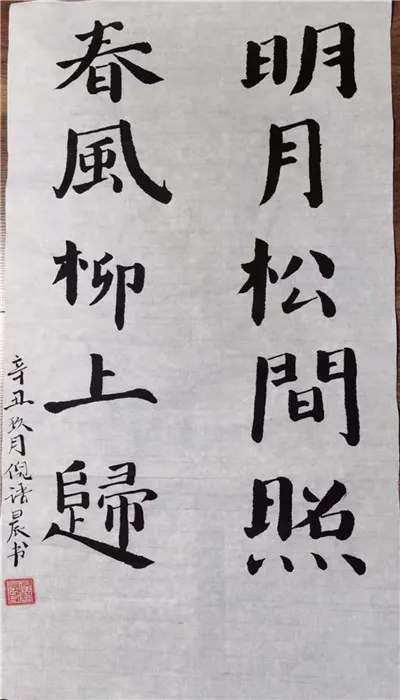 明月松間照
春風柳上歸
辛丑玖月倪語晨书